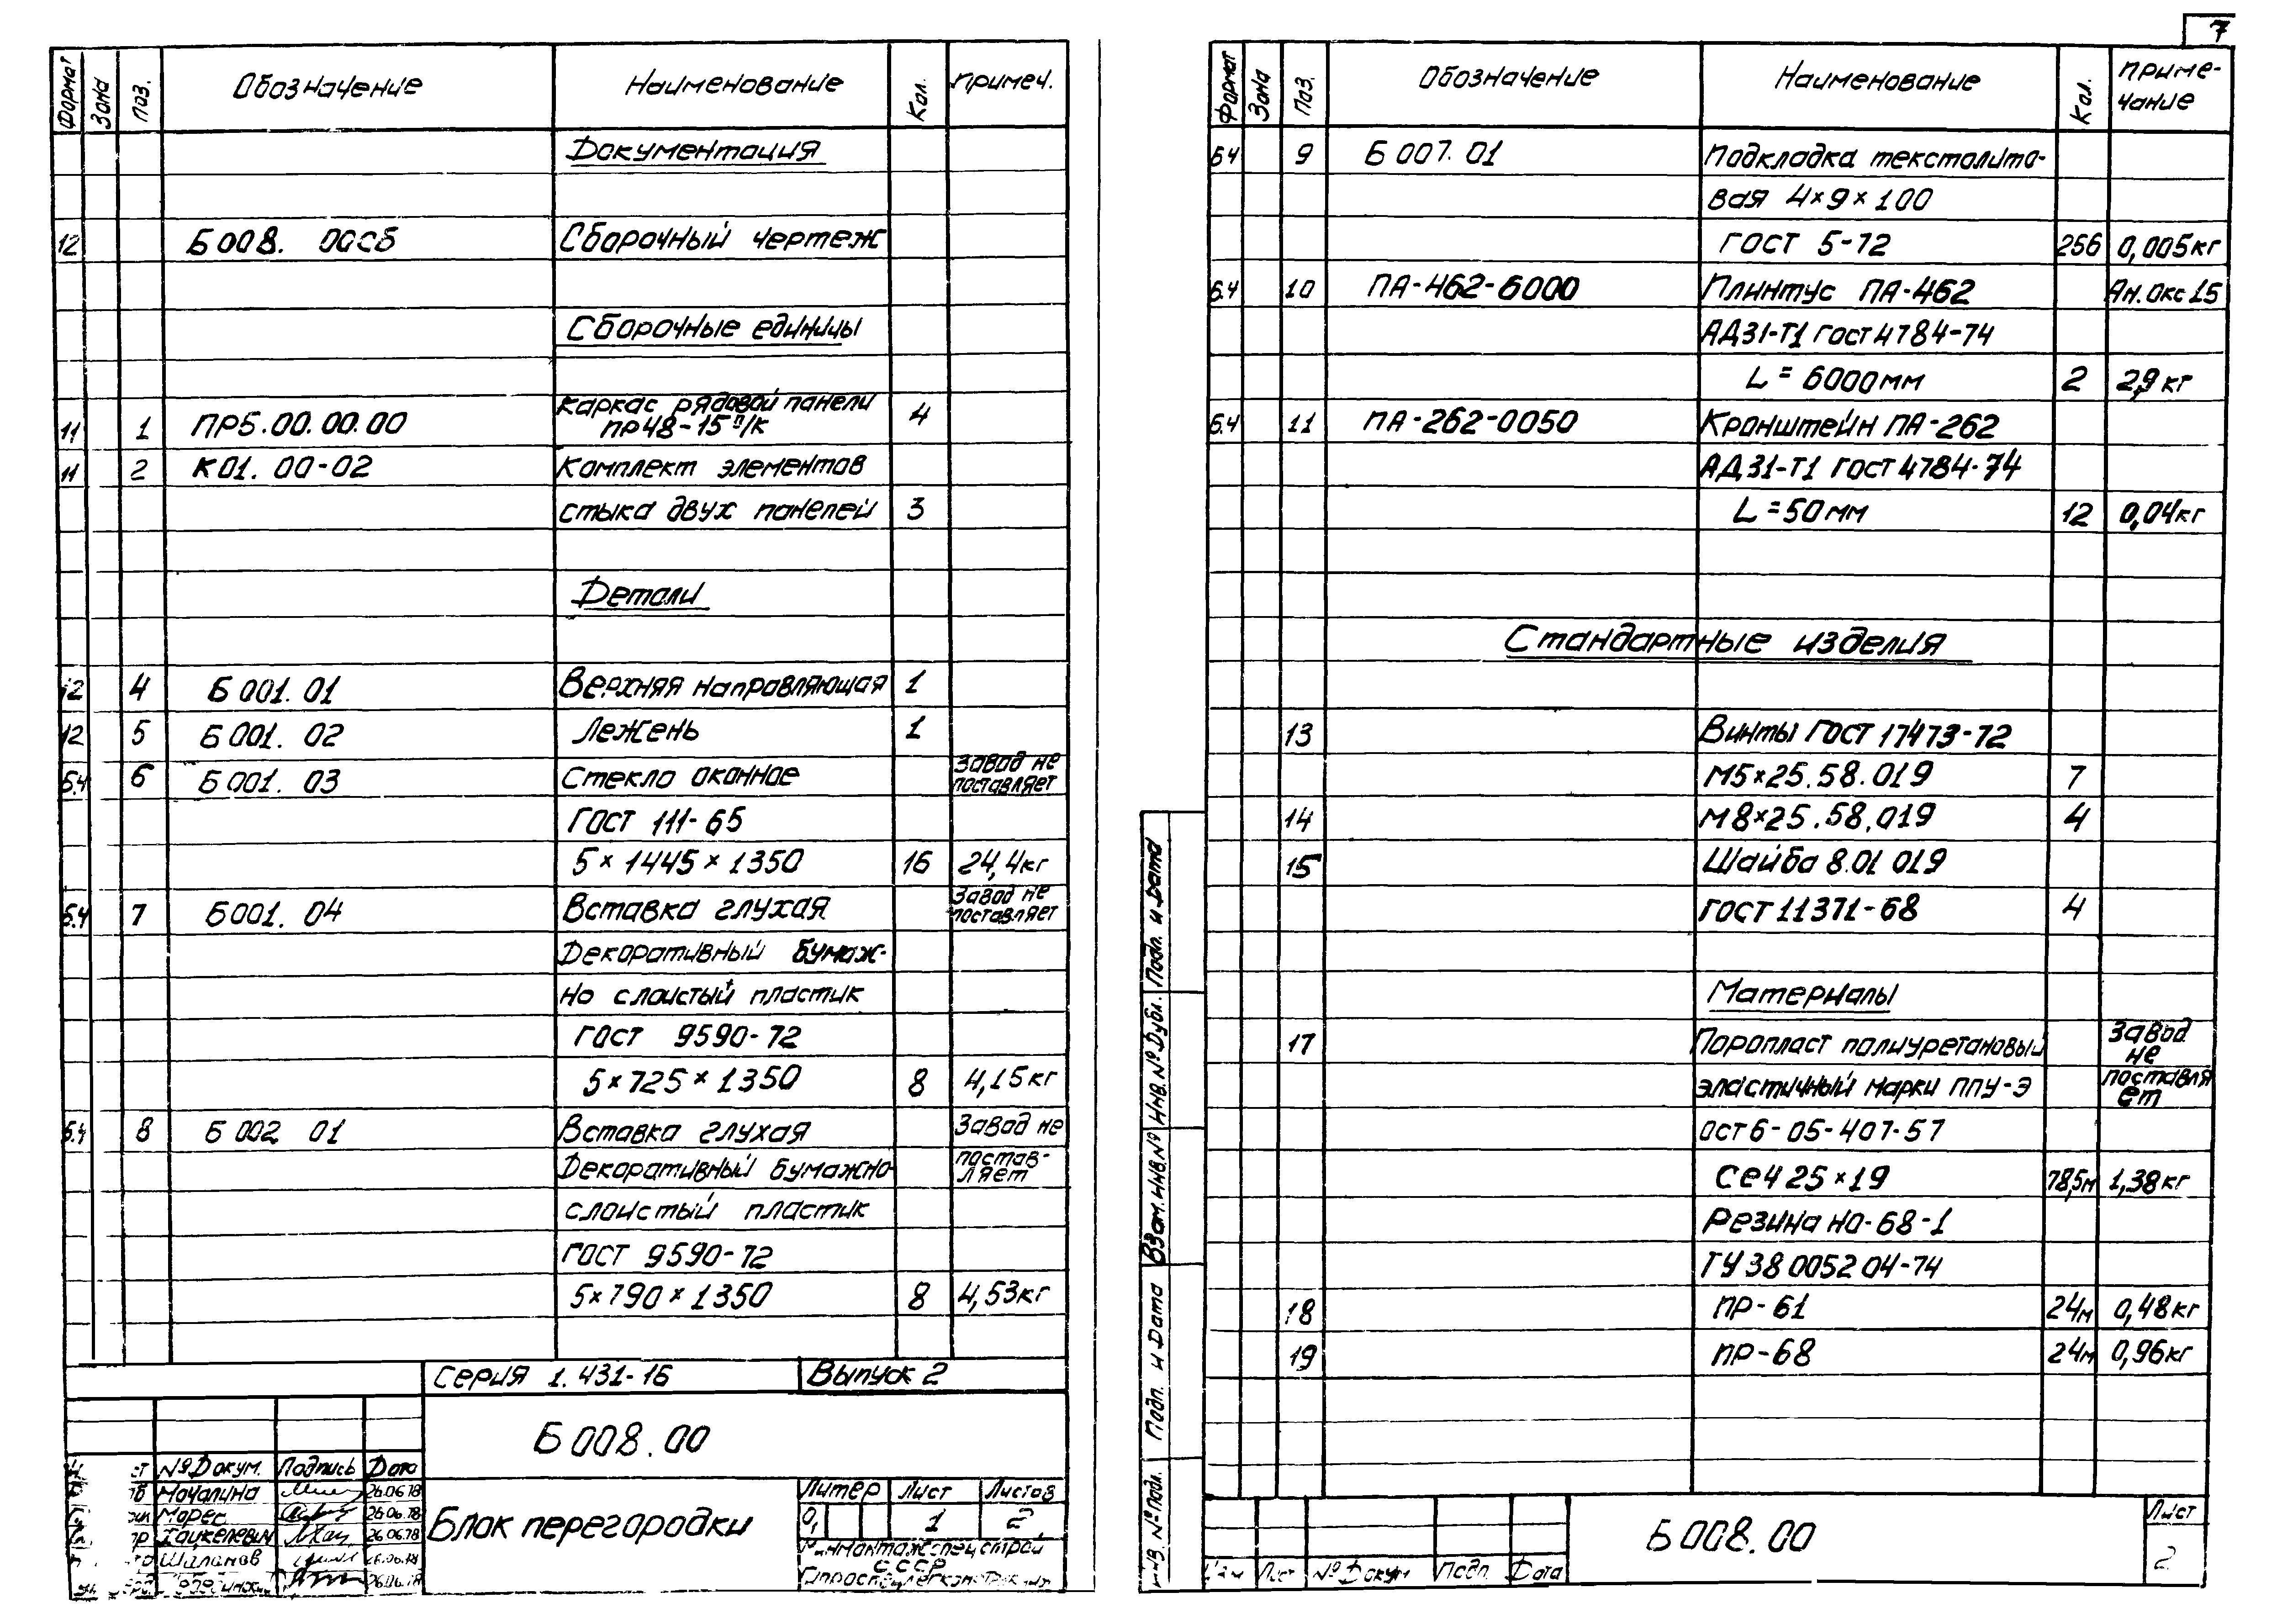 7
Формат Зона Поз. Обозначение Наименование Кол. Примеч.
Документация
12 Б008. 00СБ Сборочный чертеж
Сборочные единицы
11 1 ПР5.00.00.00 Каркас рядовой панели
ПР48-15 П/К 4
11 2 К01. 00-02 Комплект элементов
стыка двух панелей 3
Детали
12 4 Б 001. 01 Верхняя направляющая 1
12 5 Б 001. 02 Лежень 1
Б.4 6 Б 001. 03 Стекло оконное Завод не
поставляет
ГОСТ 111-65
5×1445×1350 16 24,4кг
Б.4 7 Б001. 04 Вставка глухая Завод не
поставляет
Декоративный бумаж-
но слоистый пластик
ГОСТ 9590-72
5×725×1350 8 4,15кг
Б.4 8 Б 002 01 Вставка глухая Завод не
Декоративный бумажно постав-
ляет
слоистый пластик
ГОСТ 9590-72
5×790×1350 8 4,53кг
Серия 1.431-16 Выпуск 2
Б 008.00
№ Докум. Подпись Дата
Мочалина 26.06.78
Морес 26.06.78
Гацкелевич 26.06.78
Шаланов 26.06.78
26.06.78
Блок перегородки
Литер Лист Листов
1 2
Минмонтажспецстрой
СССР
Гипроспецлегконструкция
Формат Зона Поз. Обозначение Наименование Кол. Приме-
чание
Б4 9 Б 007. 01 Подкладка текстолито-
вая 4×9×100
ГОСТ 5-72 256 0,005кг
Б.4 10 ПА-462-6000 Плинтус ПА-462 Ан.Окс 15
АД31-Т1 ГОСТ 4784-74
L = 6000мм 2 2,9 кг
Б.4 11 ПА-262-0050 Кронштейн ПА-262
АД31-Т1 ГОСТ 4784-74
L = 50мм 12 0,04кг
Стандартные изделия
13 Винты ГОСТ 17473-72
М5×25.58.019 7
14 М8×25.58.019 4
15 Шайба 8.01 019
ГОСТ 11371-68 4
Материалы
17 Поропласт полиуретановый Завод
не
эластичный марки ППУ-Э поставля
ет
ОСТ 6-05-407-57
Сеч 25×19 78,5м 1,38кг
Резина НО-68-1
ТУ 38 0052 04-74
18 ПР-61 24м 0,48кг
19 ПР-68 24м 0,96кг
Инв. № Подл. Подп. и Дата Взам. инв № Инв. № Дубл. Подп. и дата
Изм Лист № Докум Подп. Дата
Б 008.00
Лист
2